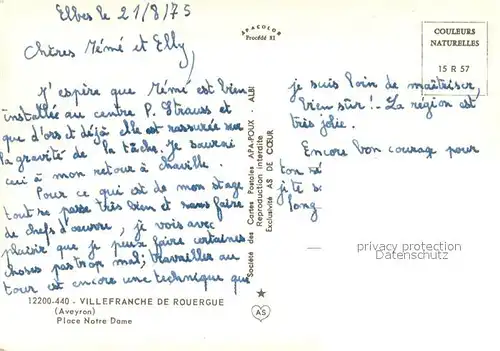 Elbes le 21/8/75
Chères Mémé et Elly,
J'espire que Mémé est bien
installée au centre P. Strauss et
que d'ors et déjà elle est rassurée sur
la gravité de la tâche. Je saurai
ceci à mon retour à Chaville.
Pour ce qui est de mon stage
tout se passe très bien et sans faire
de chefs d'œuvre, je vois avec
plaisir que je peux faire certaines
choses pas trop mal; travailler au
tour est encore une technique que
je suis loin de maîtriser,
bien sûr!- La région est
très jolie.
Encore bon courage pour
ton
je te
long
APACOLOR
Procédé 81
COULEURS
NATURELLES
15 R 57
Société des Cartes Postales APA-POUX - ALBI
Reproduction interdite
Exclusivité AS DE CŒUR
AS
12200-440 - VILLEFRANCHE DE ROUERGUE
(Aveyron)
Place Notre Dame
privacy protection
Datenschutz